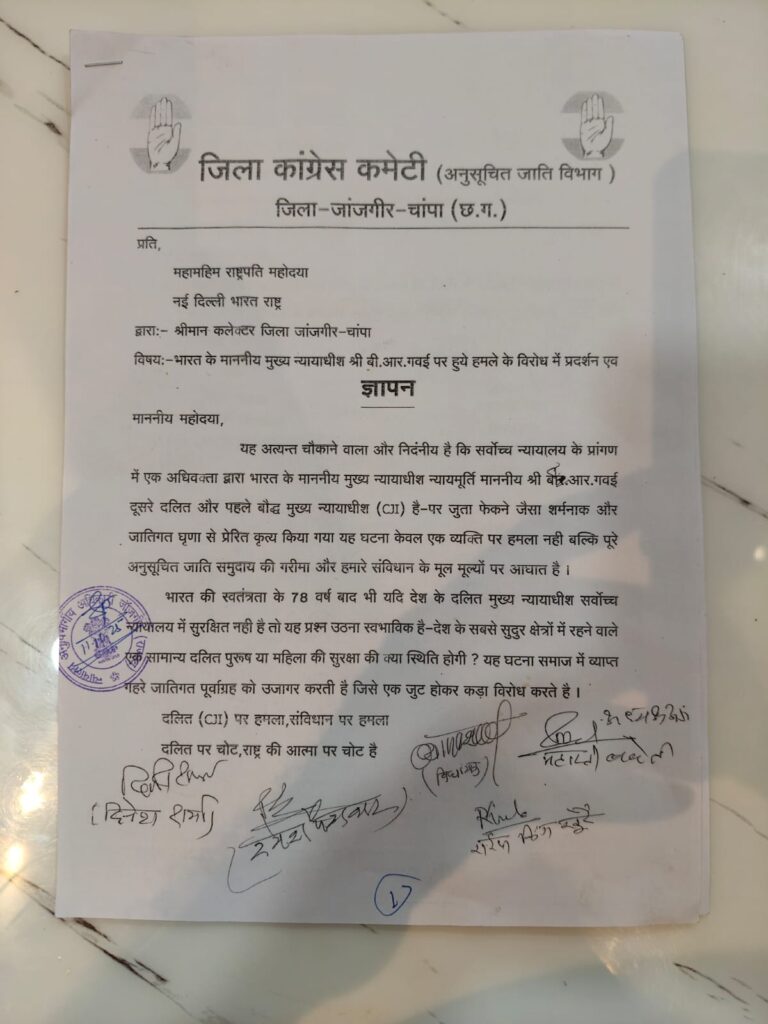 जिला कांग्रेस कमेटी (अनुसूचित जाति विभाग )
जिला-जांजगीर-चांपा (छ.ग.)
प्रति,
महामहिम राष्ट्रपति महोदया
नई दिल्ली भारत राष्ट्र
द्वाराः- श्रीमान कलेक्टर जिला जांजगीर-चांपा
विषयः-भारत के माननीय मुख्य न्यायाधीश श्री बी.आर.गवई पर हुये हमले के विरोध में प्रदर्शन एव
ज्ञापन
माननीय महोदया,
यह अत्यन्त चौकाने वाला और निदंनीय है कि सर्वोच्च न्यायालय के प्रांगण
में एक अधिवक्ता द्वारा भारत के माननीय मुख्य न्यायाधीश न्यायमूर्ति माननीय श्री बी.आर.गवई
दूसरे दलित और पहले बौद्ध मुख्य न्यायाधीश (CJI) है-पर जुता फेकने जैसा शर्मनाक और
जातिगत घृणा से प्रेरित कृत्य किया गया यह घटना केवल एक व्यक्ति पर हमला नही बल्कि पूरे
अनुसूचित जाति समुदाय की गरिमा और हमारे संविधान के मूल मूल्यों पर आघात है ।
भारत की स्वतंत्रता के 78 वर्ष बाद भी यदि देश के दलित मुख्य न्यायाधीश सर्वोच्च
न्यायालय में सुरक्षित नही है तो यह प्रश्न उठना स्वभाविक है-देश के सबसे सुदुर क्षेत्रों में रहने वाले
एक सामान्य दलित पुरूष या महिला की सुरक्षा की क्या स्थिति होगी ? यह घटना समाज में व्याप्त
गहरे जातिगत पूर्वाग्रह को उजागर करती है जिसे एक जुट होकर कड़ा विरोध करते है ।
दलित (CJI) पर हमला,संविधान पर हमला
दलित पर चोट,राष्ट्र की आत्मा पर चोट है
(दिनेश शर्मा)
1